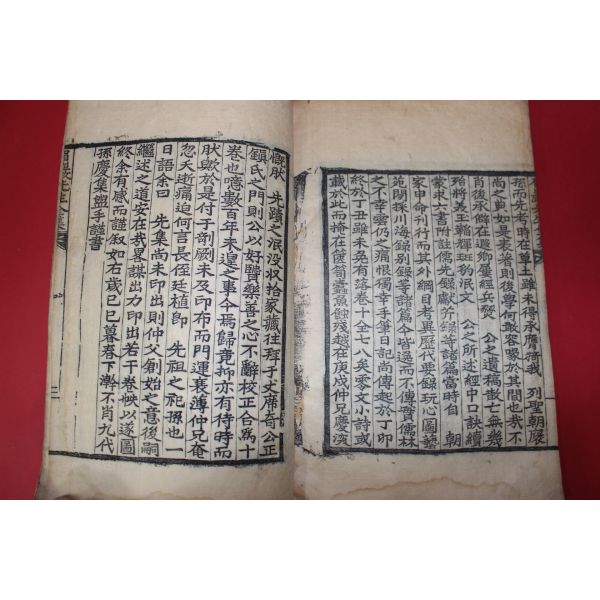 孫而先考時在草土雖未得承膺衛我　列聖朝慶
尚之如是表著則後學何敢容喙於其間也哉不
肖後承僻在遐鄕屢經兵燹　公之遺稿散亡無幾
殆將美王韜輝班豹泯文　公之所述經中口訣續
蒙求六書附註儒先錄獻芹錄等諸篇當時自　朝
家申命刊行而其外綱目考異歷代要錄玩心圖藝
苑閒採川海錄別錄等諸篇今皆逸而不傳實儒林
之不幸雲仍之痛恨獨幸手筆日記尚傳起於丁卯
終於丁丑雖未免有落卷十全七八英零文小詩或
載於此而掩在篋笥蠹魚蝕殘越在庚戌仲兄慶濱
慨肰　先蹟之泯沒収拾家藏往拜于丈席奇公正
鎭氏之門則公以好賢樂善之心不辭校正合爲十
卷也噫數百年未遑之事今焉歸竟抑亦有待時而
肰歟於是付于剞劂未及印布而門運衰薄仲兄奄
忽夭逝痛迫何言長侄廷植卽　先祖之祀孫也一
日語余曰　先集尚未印出則仲父創始之意後嗣
繼述之道安在哉畧謀出力印出若干卷帙以遂圖
終余有感而謹叙如右歲己巳暮春下澣不肖九代
孫慶集盥手謹書
二